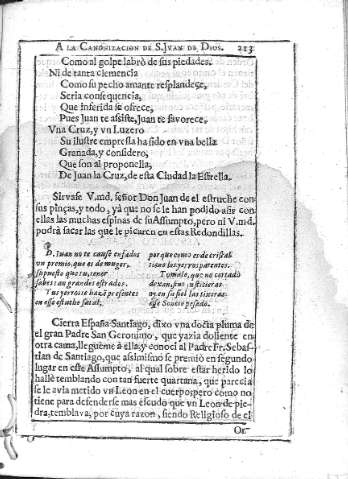 A LA CANONIZACION DE S. JVAN DE DIOS. 223
Como al golpe labrò de sus piedades.
Ni de tanta clemencia
Como su pecho amante resplandeçe,
Seria consequencia,
Que inferida se ofrece,
Pues Juan te assiste, Juan te favorece,
Vna Cruz, y vn Luzero
Su ilustre empressa ha sido en vna bella
Granada, y considero,
Que son al proponella,
De Juan la Cruz, de esta Ciudad la Estrella.
Sirvase V.md. señor Don Juan de el estruche con
sus pinças, y todo, yà que no se le han podido añe con
ellas las muchas espinas de su Assumpto, pero ni V.md.
podrà sacar las que le picaren en estas Redondillas.
D. Juan no te cause enfados
vn premio, que es de muger,
supuesto que su, tener
sobre tan grandes estrados.
Tus yerros te hazè presentes
en esse estuche fatal,
porque como es de cristal
tiene los yerros parentes.
Tomalo, que no cortado
dexan, sus
ay en su fiel las tixeras
esse Soneto pesado.
Cierra España Santiago, dixo vna docta pluma de
el gran Padre San Geronimo, que yazia doliente en
otra cama, lleguème à ella, y conocì al Padre Fr. Sebas-
tian de Santiago, que assimismo se premiò en segundo
lugar en este Assumpto, al qual sobre estar herido lo
hallè temblando con tan fuerte quartana, que parecia
se le avia metido vn Leon en el cuerpo; pero como no
tiene para defenderse mas escudo que vn Leon de pie-
dra, temblava, por cuya razon, siendo Religioso de el
Or-